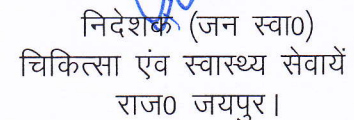 निदेशक (जन स्वा0)
चिकित्सा एंव स्वास्थ्य सेवायें
राज0 जयपुर।